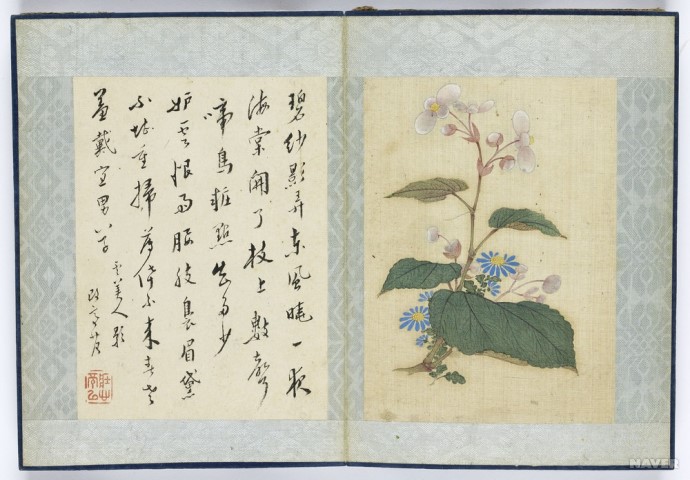 碧紗影弄東風曉一夜
海棠開了枝上數聲
啼鳥粧點愁多少
妒雲恨雨腰肢裊眉黛
不忺重掃薄倖不來春老
羞戴宜男草
虞美人影
NAVER